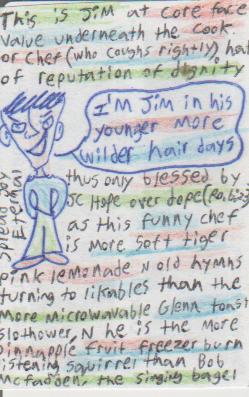 This is Jim at core face
value underneath the cook
or Chef (who coughs rightly) hat
of reputation of dignity
I'M Jim in his
younger More
wilder hair days
Splend Boy
Eternal
thus only blessed by
JC Hope over dope (Ro.
as this funny chef
is More soft tiger
pink lemonade N old hymns
turning to likables than the
More microwavable Glenn toast
slothower, N he is the More
pinnapple fruit freezer burn
listening squirrel than Bob
Mcfadden, the singing bagel